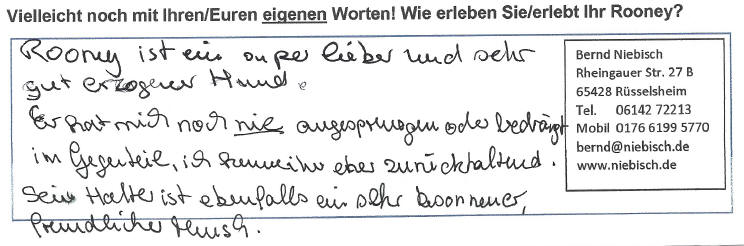 Vielleicht noch mit Ihren/Euren eigenen Worten! Wie erleben Sie/erlebt Ihr Rooney?
Rooney ist ein super lieber und sehr
gut erzogener Hund.
Er hat mich noch nie angesprungen oder bedrängt
im Gegenteil, ich kenne ihn eher zurückhaltend.
Sein Halter ist ebenfalls ein sehr besonnener,
freundlicher Mensch.
Bernd Niebisch
Rheingauer Str. 27 B
65428 Rüsselsheim
Tel. 06142 72213
Mobil 0176 6199 5770
bernd@niebisch.de
www.niebisch.de